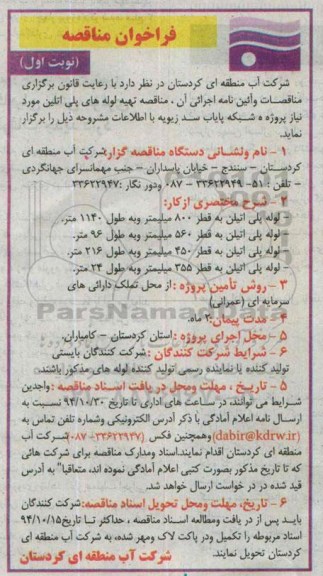 فراخوان مناقصه
(نوبت اول)
شرکت آب منطقه ای کردستان در نظر دارد با رعایت قانون برگزاری
مناقصات وآئین نامه اجرائی آن ، مناقصه تهیه لوله های پلی اتلین مورد
نیاز پروژه شبکه پایاب سد زیویه با اطلاعات مشروحه ذیل را برگزار
نماید.
۱ - نام ونشانی دستگاه مناقصه گزار: شرکت آب منطقه ای
کردستان – سنندج – خیابان پاسداران – جنب مهمانسرای جهانگردی
– تلفن : ۵۱- ۳۳۶۲۲۹۴۹ - ۰۸۷ ودور نگار :۳۳۶۲۲۹۴۷
۲ - شرح مختصری ازکار:
- لوله پلی اتیلن به قطر ۸۰۰ میلیمتر وبه طول ۱۱۴۰ متر.
- لوله پلی اتیلن به قطر ۵۶۰ میلیمتر وبه طول ۹۶ متر.
- لوله پلی اتیلن به قطر ۴۵۰ میلیمتر وبه طول ۲۱۶ متر.
- لوله پلی اتیلن به قطر ۳۵۵ میلیمتر وبه طول ۲۴ متر.
۳ - روش تأمین پروژه : از محل تملک دارائی های
سرمایه ای (عمرانی)
۴ - مدت پیمان: ۲ ماه
۵ - محل اجرای پروژه : استان کردستان – کامیاران
۶ - شرایط شرکت کنندگان : شرکت کنندگان بایستی
تولید کننده یا نماینده رسمی تولید کننده لوله های مذکور باشند.
۵ - تاریخ ، مهلت ومحل در یافت اسناد مناقصه : واجدین
شرایط می توانند، در ساعت های اداری تا تاریخ ۹۴/۱۰/۳۰ نسبت به
ارسال نامه اعلام آمادگی با ذکر آدرس الکترونیکی وشماره تلفن تماس به
(dabir@kdrw.ir) وهمچنین فکس (۳۳۶۲۲۹۴۷-۰۸۷) شرکت آب
منطقه ای کردستان اقدام نمایند.اسناد ومدارک مناقصه برای شرکت هائی
که تا تاریخ مذکور بصورت کتبی اعلام آمادگی نموده اند، متعاقبا" به آدرس
قید شده در در خواست ارسال خواهد شد.
۶ - تاریخ، مهلت ومحل تحویل اسناد مناقصه: شرکت کنندگان
باید پس از در یافت ومطالعه اسناد مناقصه ، حداکثر تا تاریخ ۹۴/۱۰/۱۵
اسناد مربوطه را تکمیل ودر پاکت لاک ومهر شده، به شرکت آب منطقه ای
کردستان تحویل نمایند.
شرکت آب منطقه ای کردستان